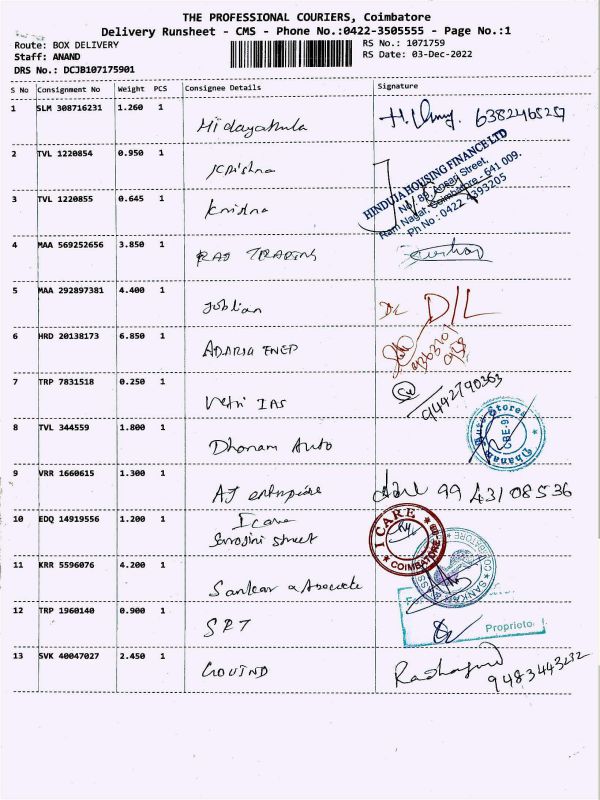 THE PROFESSIONAL COURIERS, Coimbatore
Delivery Runsheet - CMS - Phone No.:0422-3505555 - Page No.:1
Route: BOX DELIVERY
Staff: ANAND
DRS No.: DCJB107175901
RS No.: 1071759
RS Date: 03-Dec-2022
S No Consignment No Weight PCS Consignee Details Signature
1 SLM 308716231 1.260 1 Hidayathula 6382465257
2 TVL 1220854 0.950 1 Krishna
HINDUJA HOUSING FINANCE LTD
No. 89, Ansari Street,
Ram Nagar, Coimbatore - 641 009.
Ph No : 0422 4393205
3 TVL 1220855 0.645 1 Krishna
4 MAA 569252656 3.850 1 RAJ TRADING
5 MAA 292897381 4.400 1 Jublian DL D/L
6 HRD 20138173 6.850 1 ADARIA ENEP
7 TRP 7831518 0.250 1 Vetri IAS 9442790363
8 TVL 344559 1.800 1 Dhanam Auto
Dhanam Auto Stores
CBE-9
9 VRR 1660615 1.300 1 AJ enterpise 99 431 08536
10 EDQ 14919556 1.200 1 Icare
Sarojini street
I CARE
COIMBATORE
11 KRR 5596076 4.200 1 Sankar a Associate
12 TRP 1960140 0.900 1 SRT
Proprietor
13 SVK 40047027 2.450 1 GOVIND 9483443232